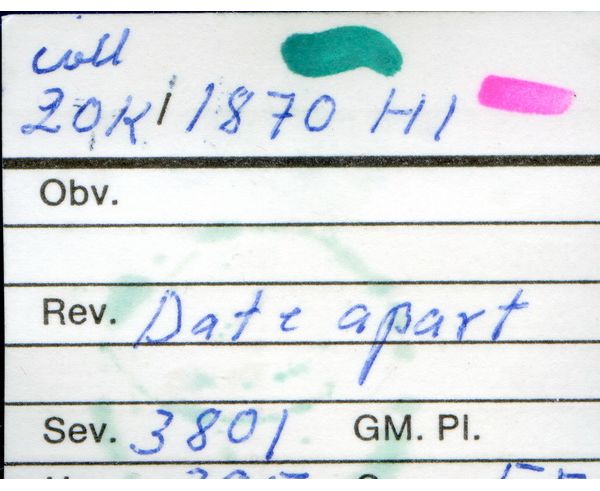 coll
20K 1870 HI
Obv.
Rev. Date apart
Sev. 3801 GM. Pl.